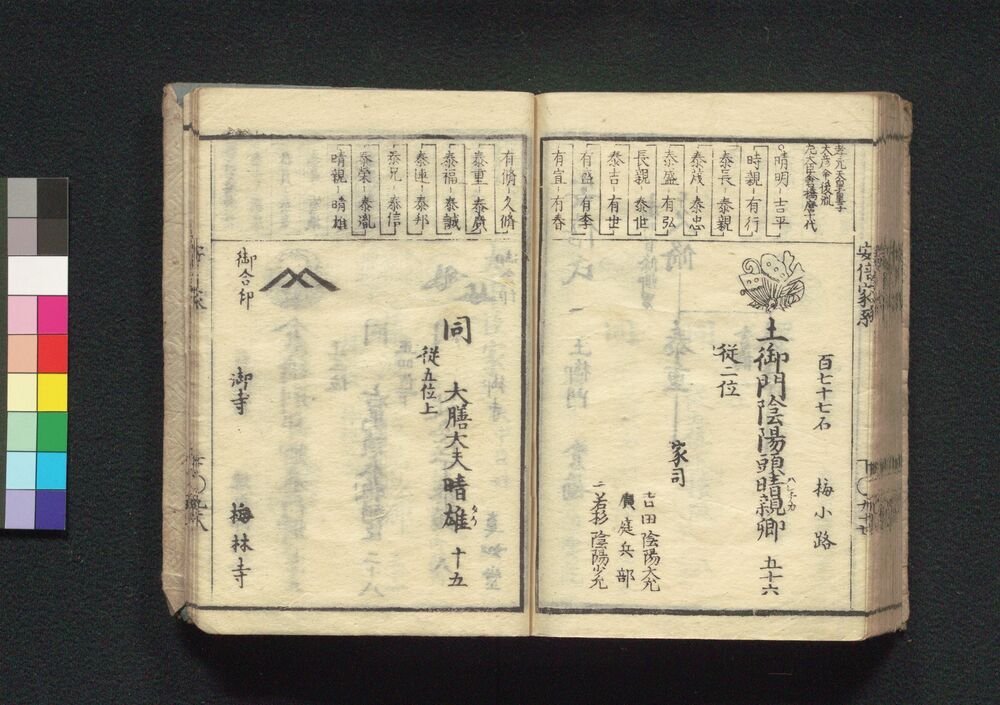 安倍家系
孝元天皇皇子
大彦命後胤
晴明-吉平
時親-有行
泰長-泰親
泰茂-泰忠
泰盛-有弘
長親-泰世
泰吉-有世
有盛-有季
有宣-有春
百七十七石 梅小路
土御門陰陽頭晴親卿 五十六
従二位
家司
吉田陰陽大允
庭兵部
若杉陰陽少允
有脩-久脩
泰重-泰廣
泰福-泰誠
泰連-泰邦
泰兄-泰信
泰榮-泰胤
晴親-晴雄
同 大膳大夫晴雄 十五
従五位上
御合印
御寺 梅林寺